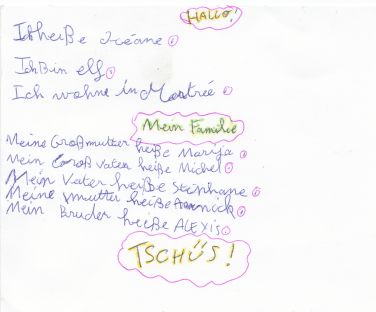 HALLO!
Ich heiße Océane.
Ich Bin elf.
Ich wohne in Mortrée.
Mein Familie
Meine Großmutter heiße Maryja.
Mein Groß Vater heiße Michel.
Mein Vater heiße Stéphane.
Meine mutter heiße Annick.
Mein Bruder heiße ALEXIS.
TSCHÜS!